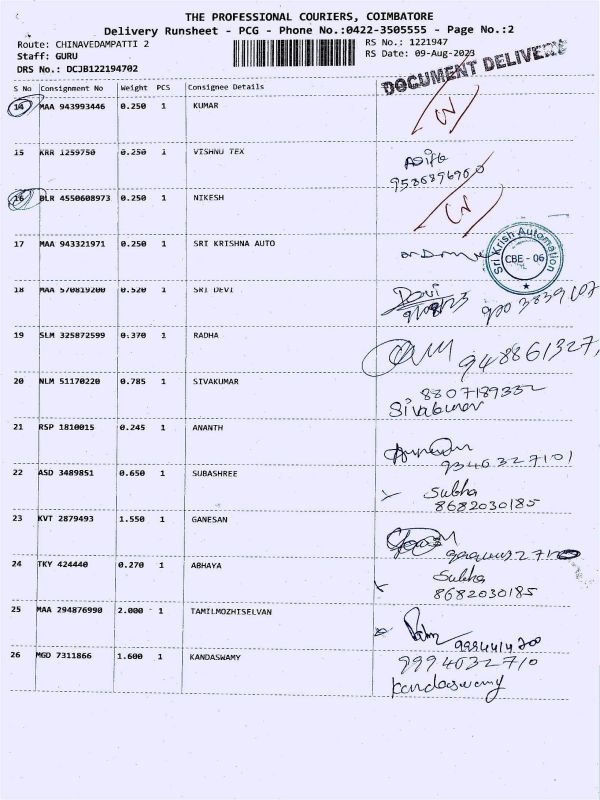 THE PROFESSIONAL COURIERS, COIMBATORE
Delivery Runsheet - PCG - Phone No.:0422-3505555 - Page No.:2
Route: CHINAVEDAMPATTI 2 RS No.: 1221947
Staff: GURU RS Date: 09-Aug-2023
DRS No.: DCJB122194702
DOCUMENT DELIVERY
S No Consignment No Weight PCS Consignee Details
14 MAA 943993446 0.250 1 KUMAR
15 KRR 1259750 0.250 1 VISHNU TEX
16 BLR 4550608973 0.250 1 NIKESH
17 MAA 943321971 0.250 1 SRI KRISHNA AUTO
Sri Krish Automation
CBE - 06
18 MAA 570819200 0.520 1 SRI DEVI
Devi
19 SLM 325872599 0.370 1 RADHA
20 NLM 51170220 0.785 1 SIVAKUMAR
8807189332
Sivakumar
21 RSP 1810015 0.245 1 ANANTH
9346327101
22 ASD 3489851 0.650 1 SUBASHREE
Subha
8682030185
23 KVT 2879493 1.550 1 GANESAN
24 TKY 424440 0.270 1 ABHAYA
Subha
8682030185
25 MAA 294876990 2.000 1 TAMILMOZHISELVAN
26 MGD 7311866 1.600 1 KANDASWAMY
9994032710
Kandaswamy